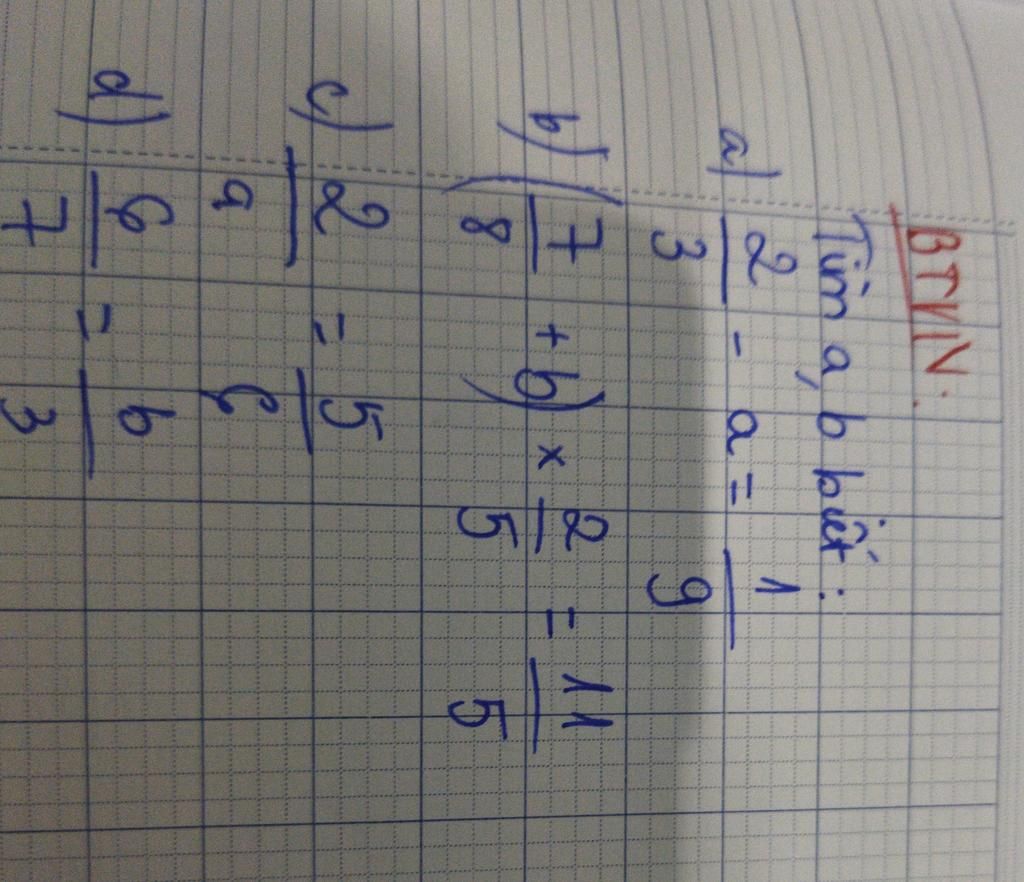 BTVN:
Tìm a, b biết:
a) 2/3 - a = 1/9
b) (7/8 + b) × 2/5 = 11/5
c) 2/a = 5/6
d) 6/7 = b/3